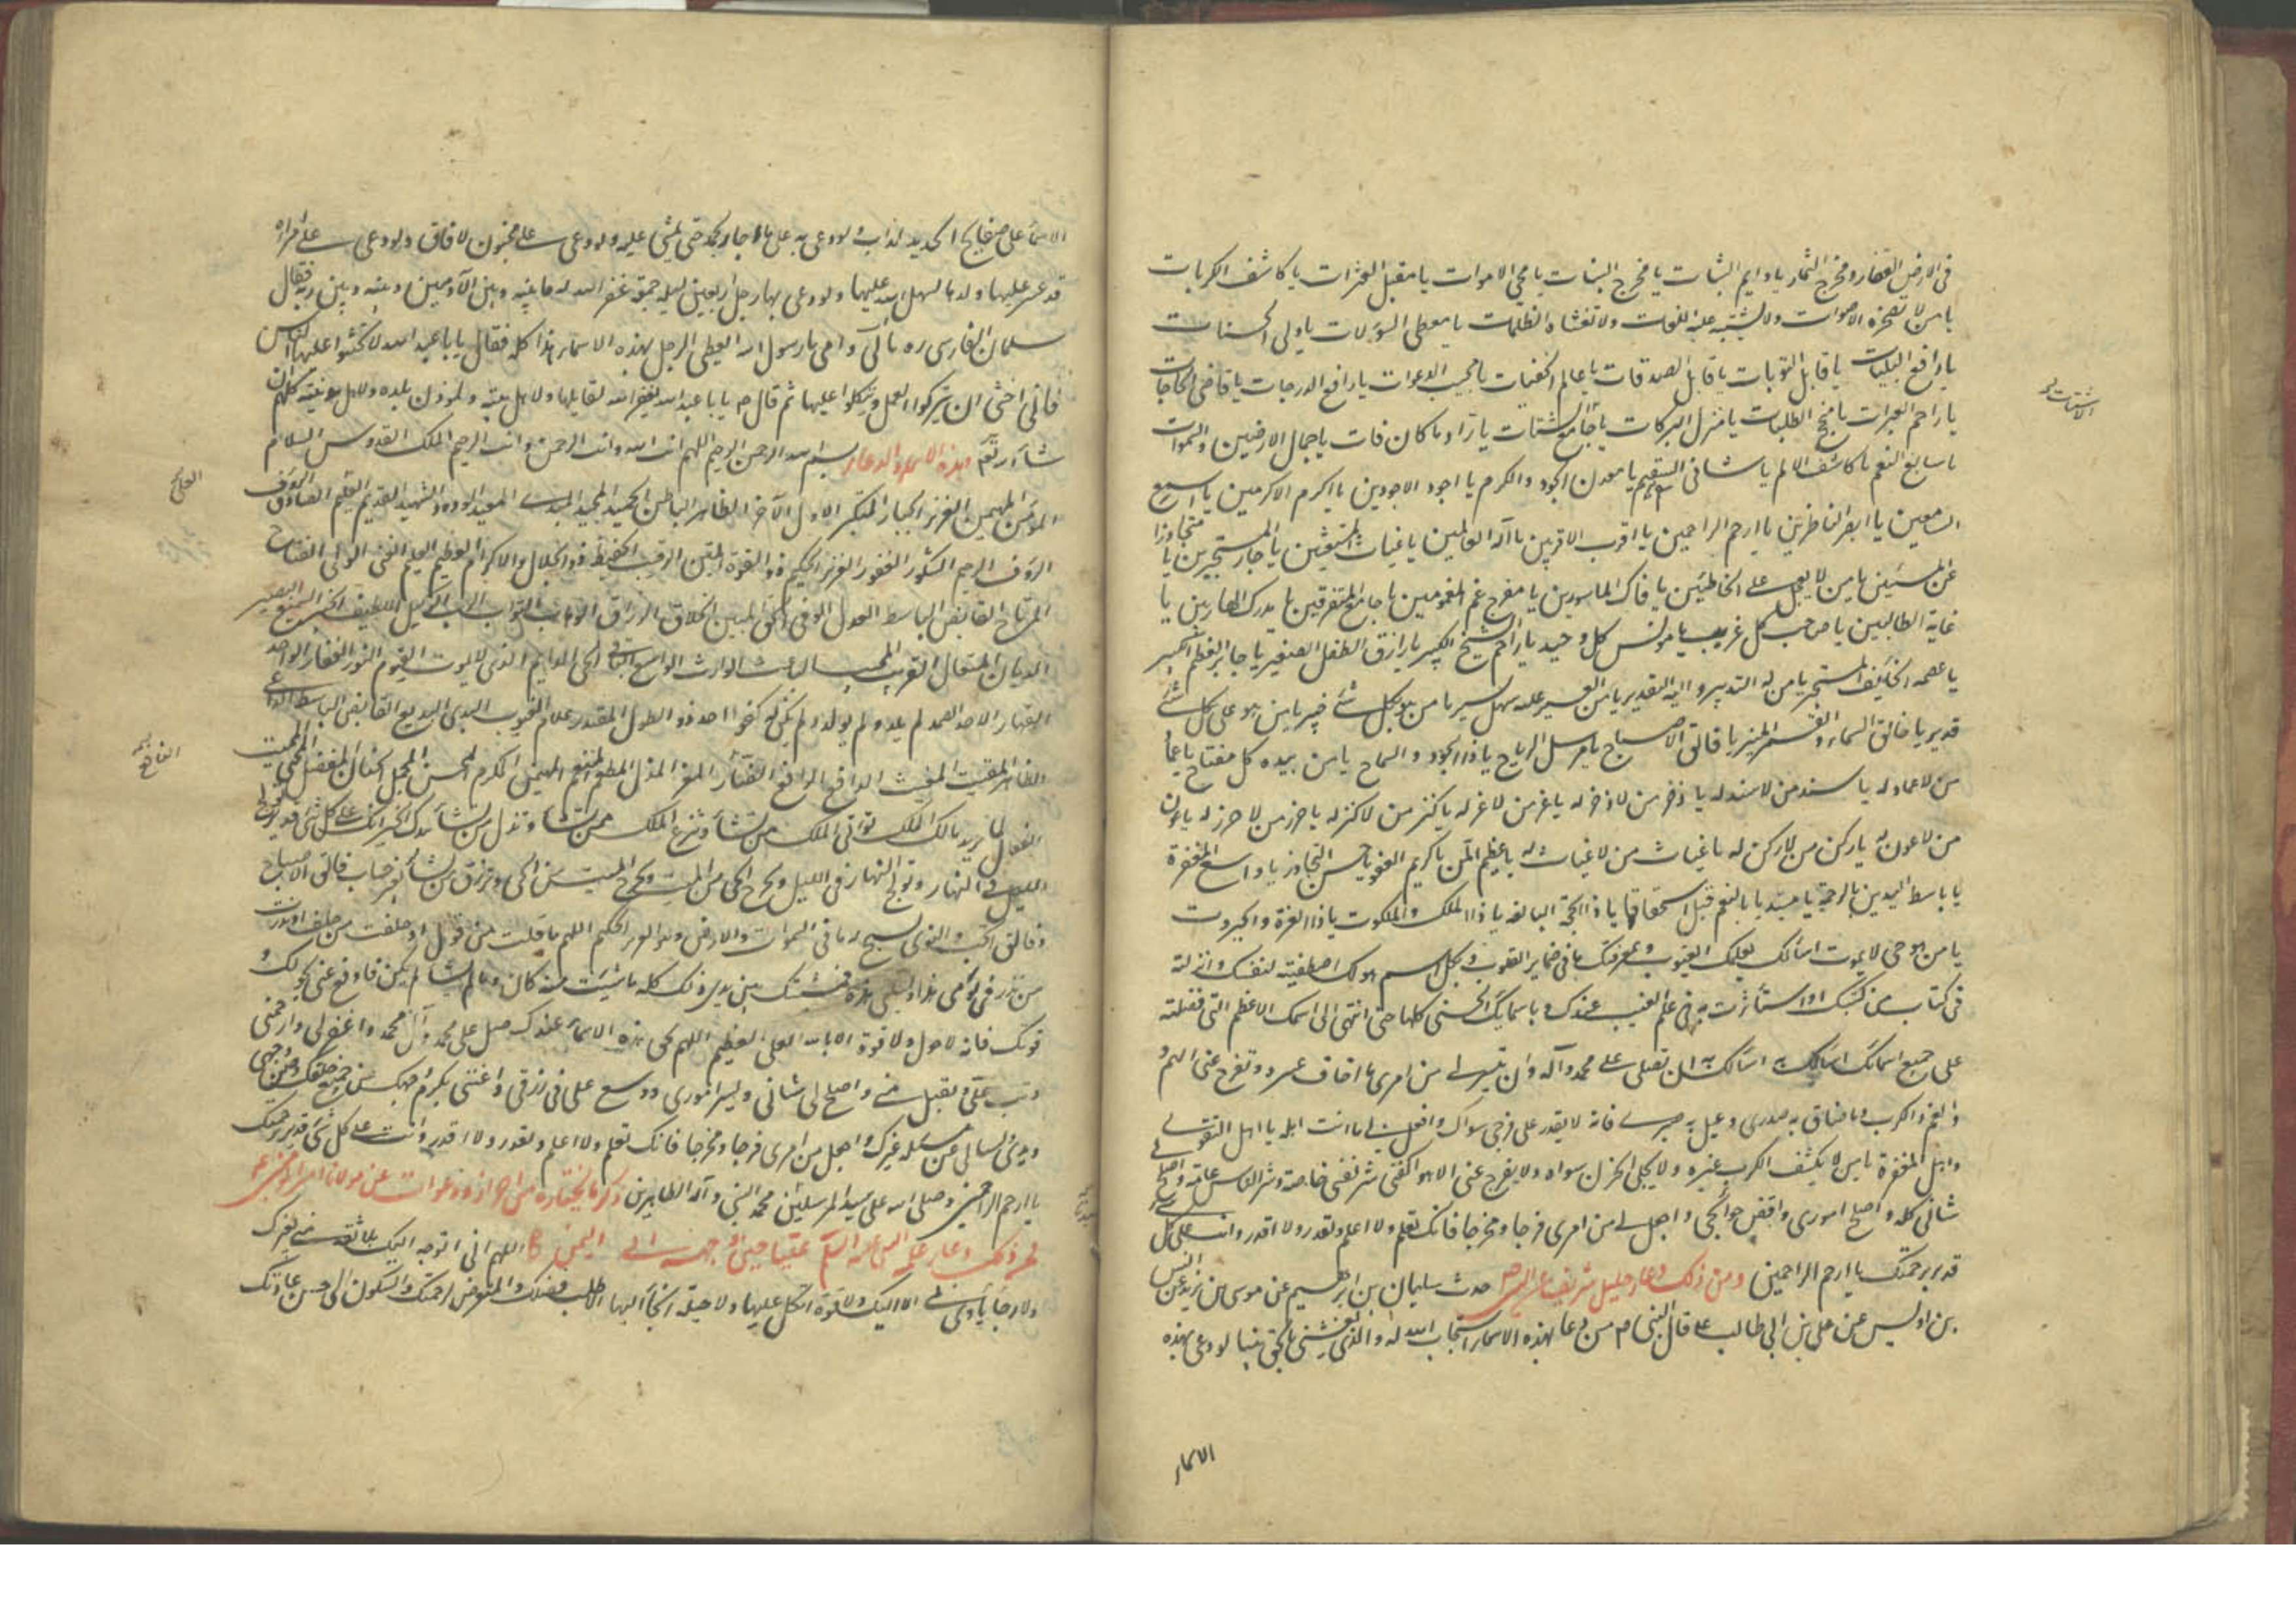 فى الارض القفار ومخرج الثمار يا دايم الثبات يا مخرج النبات يا محى الاموات يا مقيل العثرات يا كاشف الكربات
يا من لا تضجره الاصوات ولا تشتبه عليه اللغات ولا تغشاه الظلمات يا معطى السؤلات يا ولى الحسنات
يا دافع البليات يا قابل التوبات يا قابل الصدقات يا عالم الخفيات يا مجيب الدعوات يا رافع الدرجات يا قاضى الحاجات
يا راحم العبرات يا منجح الطلبات يا منزل البركات يا جامع الشتات يا راد ما كان فات يا جمال الارضين والسموات
يا سابغ النعم يا كاشف الالم يا شافى السقم يا معدن الجود والكرم يا اجود الاجودين يا اكرم الاكرمين يا اسمع
السامعين يا ابصر الناظرين يا ارحم الراحمين يا اقرب الاقربين يا اله العالمين يا غياث المستغيثين يا جار المستجيرين يا متجاوزا
عن المسيئين يا من لا يعجل على الخاطئين يا فاك الماسورين يا مفرج غم المغمومين يا جامع المتفرقين يا مدرك الهاربين يا
غاية الطالبين يا صاحب كل غريب يا مونس كل وحيد يا راحم الشيخ الكبير يا رازق الطفل الصغير يا جابر العظم الكسير
يا عصمه الخايف المستجير يا من له التدبير واليه التقدير يا من العسير عليه سهل يسير يا من هو بكل شئ خبير يا من هو على كل شئ
قدير يا خالق السماء والقمر المنير يا فالق الاصباح يا مرسل الرياح يا ذا الجود والسماح يا من بيده كل مفتاح يا عماد
من لا عماد له يا سند من لا سند له يا ذخر من لا ذخر له يا عز من لا عز له يا كنز من لا كنز له يا حرز من لا حرز له يا عون
من لا عون له يا ركن من لا ركن له يا غياث من لا غياث له يا عظيم المن يا كريم العفو يا حسن التجاوز يا واسع المغفرة
يا باسط اليدين بالرحمة يا مبتديا بالنعم قبل استحقاقها يا ذا الحجة البالغه يا ذا الملك والملكوت يا ذا العزة والجبروت
يا من هو حى لا يموت اسالك بعلمك الغيوب وبمعرفتك ما فى ضماير القلوب وبكل اسم هو لك اصطفيته لنفسك وانزلته
فى كتاب من كتبك او استأثرت به فى علم الغيب عندك وباسمايك الحسنى كلها حتى انتهى الى اسمك الاعظم التى فضلته
على جميع اسمائك اسالك به اسالك به ان تصلى على محمد وآله وان تيسر لى من امرى ما اخاف عسره وتفرج عنى الهم و
والغم والكرب وما ضاق به صدرى وعيل به صبرى فانه لا يقدر على فرجى سواك وافعل بى ما انت اهله يا اهل التقوى
واهل المغفرة يا من لا يكشف الكرب غيره ولا يجلى الحزن سواه ولا يفرج عنى الا هو اكفنى شر نفسى خاصة وشر الناس عامة واصلح لى
شانى كله واصلح امورى واقض حوائجى واجعل لى من امرى فرجا ومخرجا فانك تعلم ولا اعلم وتقدر ولا اقدر وانت على كل
قدير برحمتك يا ارحم الراحمين ومن ذلك دعاء جليل شريف حدث سليمان بن ابراهيم عن موسى بن يزيد عن انس
بن اويس عن على بن ابى طالب ع قال النبى ص من دعا بهذه الاسماء استجاب الله له والذى بعثنى بالحق نبيا لو دعى بهذه
الاسماء
الاشتات
الاسماء على صفايح الحديد لذاب ولو دعى به على ماء جار لجمد حتى يمشى عليه ولو دعى على مجنون لافاق ولو دعى على امراة
قد عسر عليها ولدها لسهل الله عليها ولو دعى بها رجل اربعين ليله جمعة غفر الله له ما بينه وبين الآدميين وبينه وبين ربه فقال
سلمان الفارسى ره بابى وامى يا رسول الله ايعطى الرجل بهذه الاسماء هذا كله فقال يا ابا عبد الله لا تحثوا عليها الناس
فانى اخشى ان يتركوا العمل ويتكلوا عليها ثم قال ص يا ابا عبد الله يغفر الله لقايلها ولاهل بيته ولموذن بلده ولاهل مدينته كلهم ان
شاء الله تع وهذه الاسماء والدعاء بسم الله الرحمن الرحيم اللهم انت الله وانت الرحمن وانت الرحيم الملك القدوس السلام
المومن المهيمن العزيز الجبار المتكبر الاول الآخر الظاهر الباطن الحميد المجيد المبدئ المعيد الودود الشهيد القديم العليم الصادق
الرؤف الرحيم الشكور الغفور العزيز الحكيم ذو القوة المتين الرقيب الحفيظ ذو الجلال والاكرام العظيم العليم الغنى الولى الفتاح
المرتاح القابض الباسط العدل الوفى الحق المبين الخلاق الرزاق الوهاب التواب الرب الوكيل اللطيف الخبير السميع البصير
الديان المتعال القريب المجيب الباعث الوارث الواسع الباقى الحى الدايم الذى لا يموت القيوم النور الغفار الواحد
القهار الاحد الصمد لم يلد ولم يولد ولم يكن له كفوا احد ذو الطول المقتدر علام الغيوب البدى البديع القابض الباسط الداعى
الظاهر المقيت المغيث الدافع الرافع الضار المعز المذل المطعم المنعم المهيمن المكرم المحسن المجمل الحنان المفضل المحيى المميت
الفعال لما يريد مالك الملك توتى الملك من تشاء وتنزع الملك ممن تشاء وتعز من تشاء وتذل من تشاء بيدك الخير انك على كل شى قدير تولج
الليل فى النهار وتولج النهار فى الليل وتخرج الحى من الميت وتخرج الميت من الحى وترزق من تشاء بغير حساب فالق الاصباح
وفالق الحب والنوى يسبح له ما فى السموات والارض وهو العزيز الحكيم اللهم ما قلت من قول او حلفت من حلف او نذرت
من نذر فى يومى هذا وليلتى هذه فمشيتك بين يدى ذلك كله ما شئت منه كان وما لم تشا لم يكن فادفع عنى بحولك و
قوتك فانه لا حول ولا قوة الا بالله العلى العظيم اللهم بحق هذه الاسماء عندك صل على محمد وآل محمد واغفر لى وارحمنى
وتب على وتقبل منى واصلح لى شانى ويسر امورى ووسع على فى رزقى واغننى بكرم وجهك عن جميع خلقك وصن وجهى
ويدى ولسانى عن مسئله غيرك واجعل من امرى فرجا ومخرجا فانك تعلم ولا اعلم وتقدر ولا اقدر وانت على كل شى قدير برحمتك
يا ارحم الراحمين وصلى الله على سيد المرسلين محمد النبى وآله الطاهرين ذكر ما نختاره من احراز ودعوات عن مولانا امير المومنين ع
فمن ذلك دعاء علمه النبى عليه السلم عليا حين وجهه الى اليمن اللهم انى اتوجه اليك بلا ثقة منى بغيرك
ولا رجاء ياوى بى الا اليك ولا قوة اتكل عليها ولا حيلة الجأ اليها الا طلب فضلك والتعرض لرحمتك والسكون الى احسن عادتك